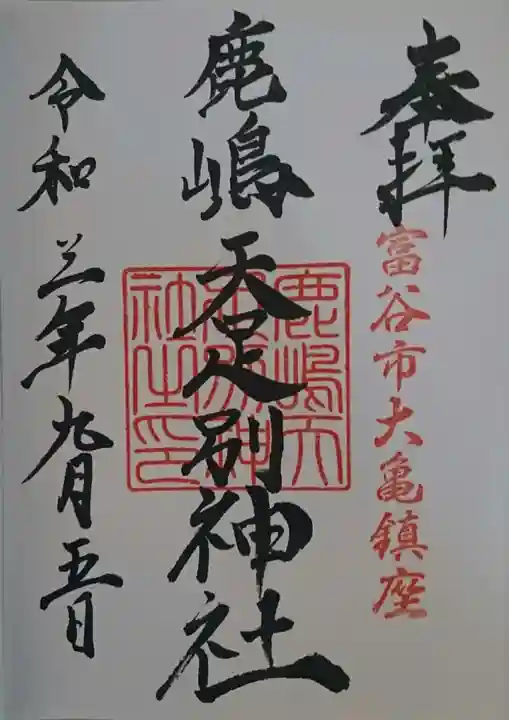 奉拝
富谷市大亀鎮座
鹿嶋天足別神社
鹿嶋天
足別神
社之印
令和三年九月五日